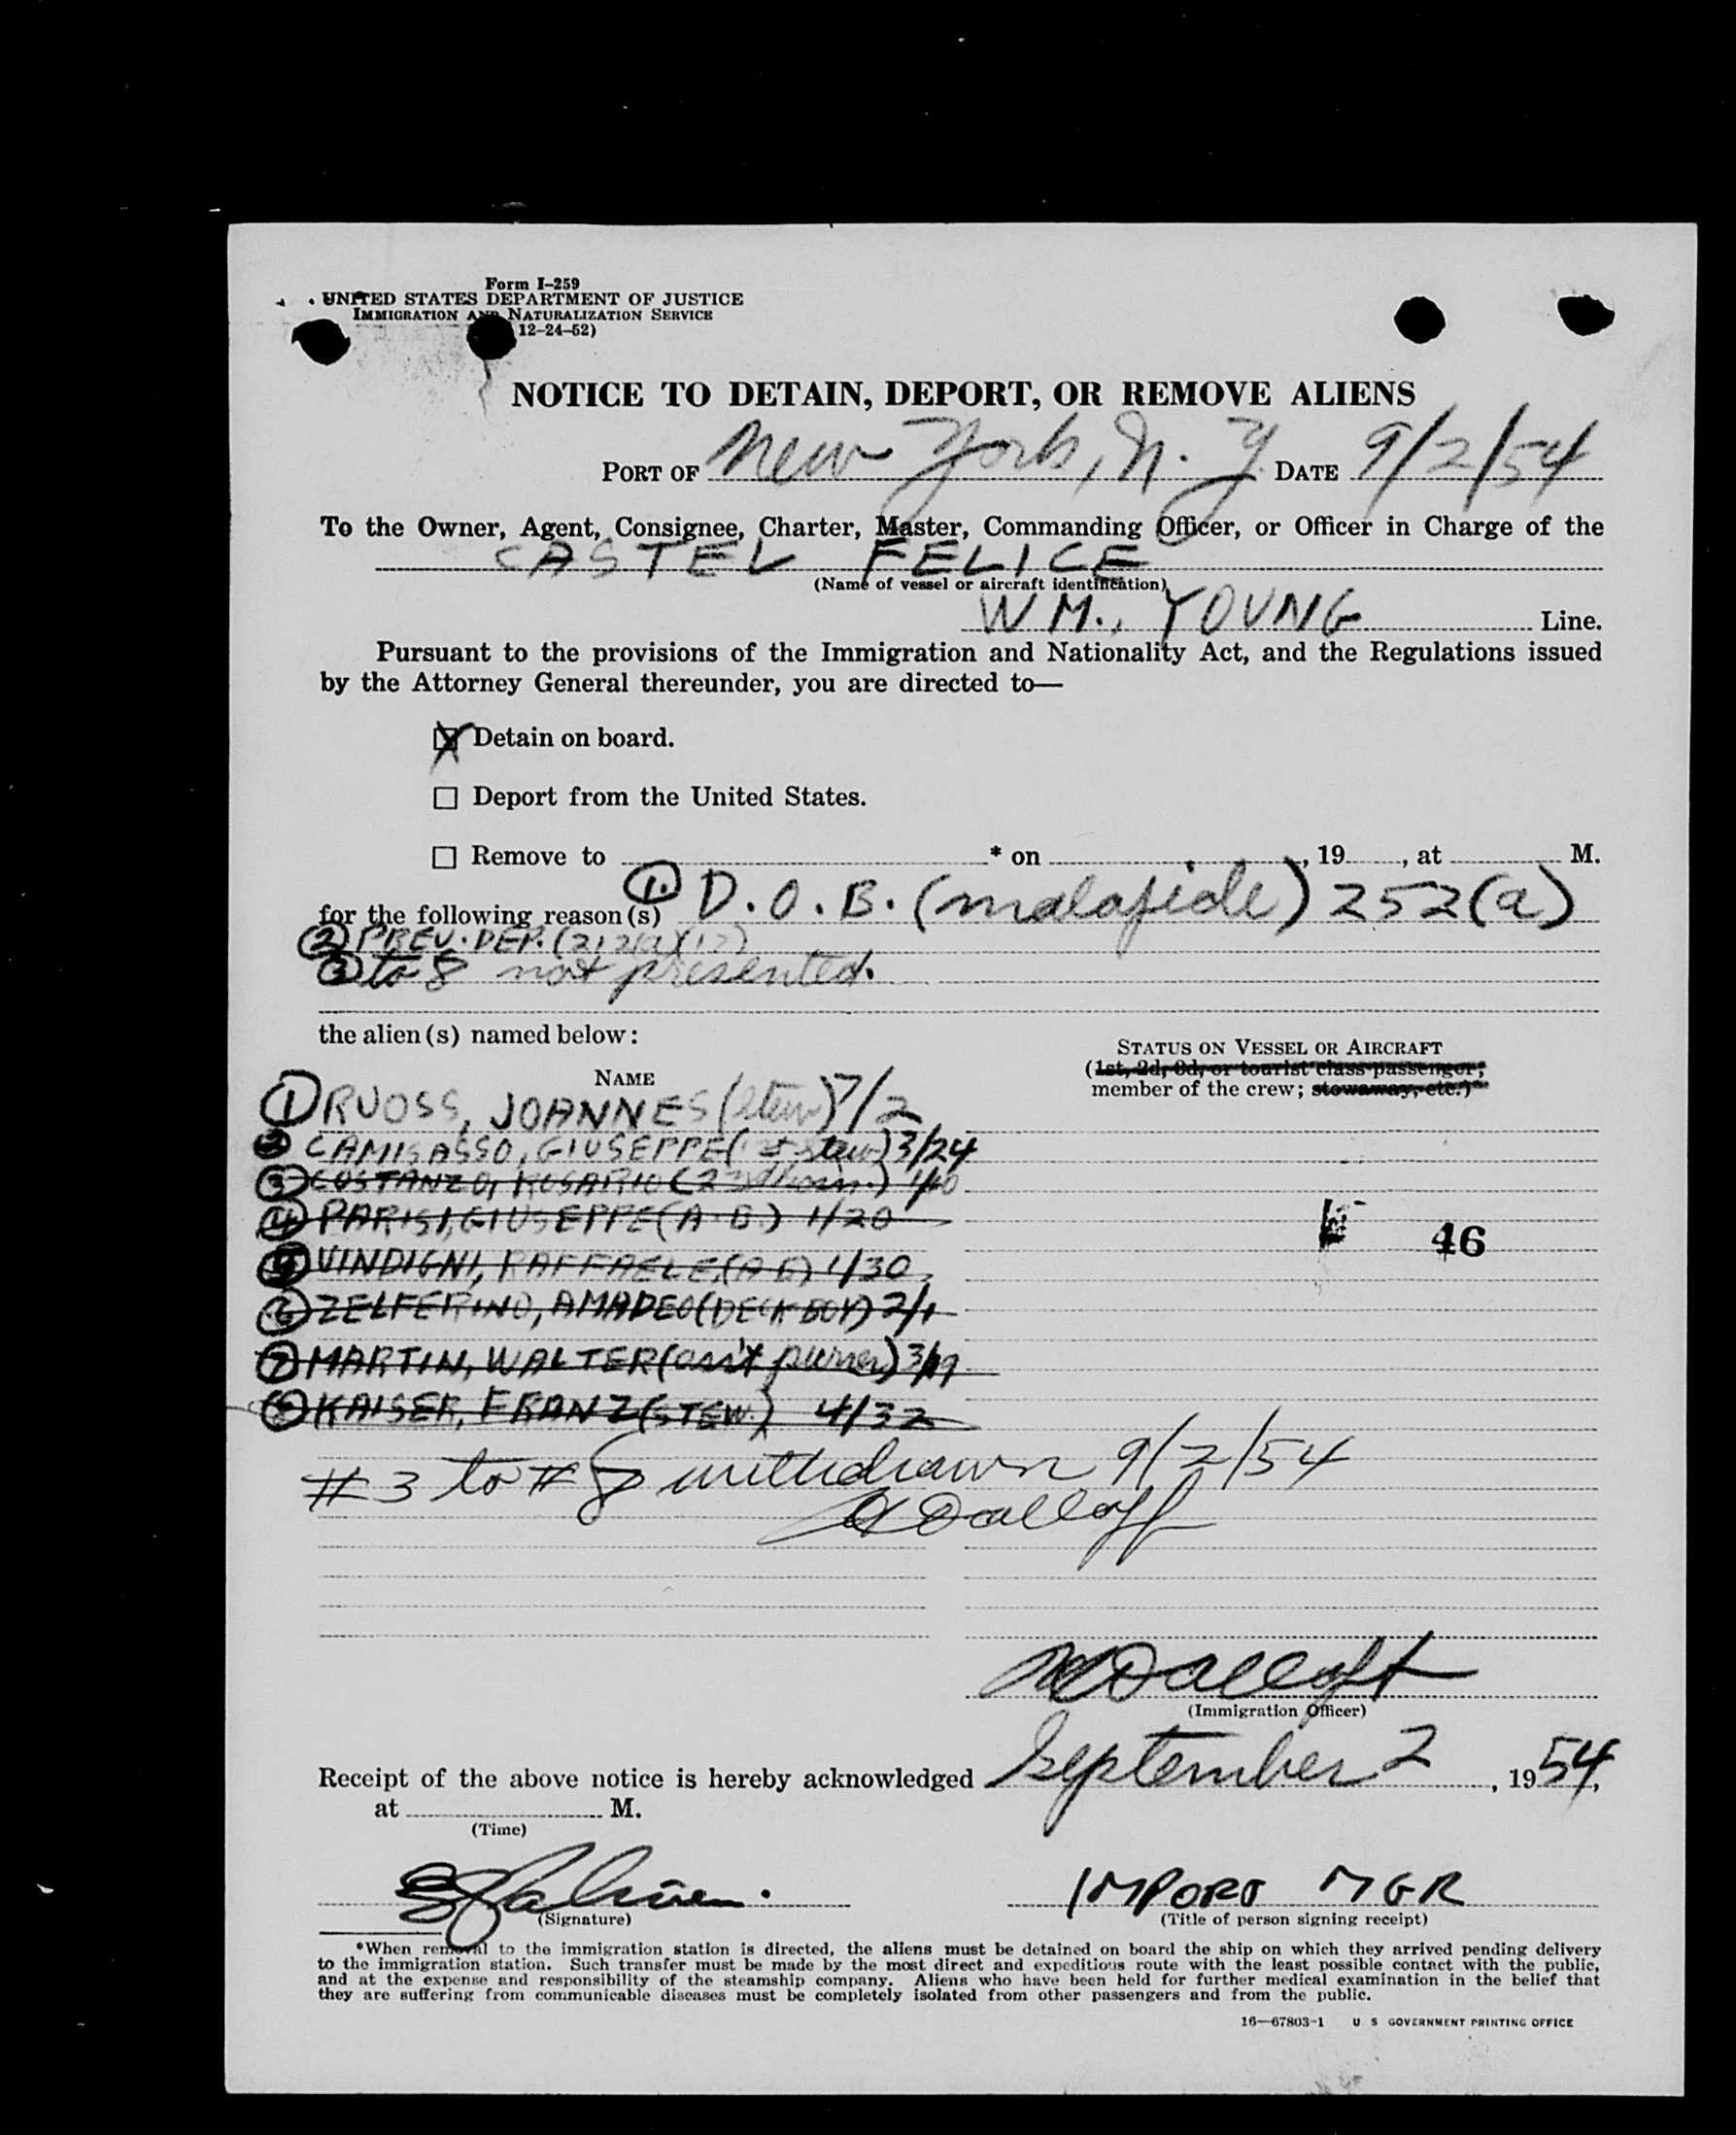 Form I-259
UNITED STATES DEPARTMENT OF JUSTICE
IMMIGRATION AND NATURALIZATION SERVICE
12-24-52)
NOTICE TO DETAIN, DEPORT, OR REMOVE ALIENS
PORT OF New York, N. Y. DATE 9/2/54
To the Owner, Agent, Consignee, Charter, Master, Commanding Officer, or Officer in Charge of the
CASTEL FELICE
(Name of vessel or aircraft identification)
WM., YOUNG Line.
Pursuant to the provisions of the Immigration and Nationality Act, and the Regulations issued
by the Attorney General thereunder, you are directed to—
☒ Detain on board.
☐ Deport from the United States.
☐ Remove to * on , 19 , at M.
for the following reason(s) 1. D.O.B. (malafide) 252(a)
2 PREV. DEP. (212(a)(17)
3 to 8 not presented.
the alien(s) named below:
NAME
STATUS ON VESSEL OR AIRCRAFT
(1st, 2d, 3d, or tourist class passenger;
member of the crew; stowaway, etc.)
1 RUOSS, JOANNES (stew) 7/2
2 CAMISASSO, GIUSEPPE ( stew) 3/24
3 COSTANZO, ROSARIO 1/10
4 PARISI, GIUSEPPE (A.B.) 1/20
46
5 VINDIGNI, RAFFAELE, (A B) 1/30
6 ZELFERINO, AMADEO (DECK BOY) 2/1
7 MARTIN, WALTER (ass't purser) 3/19
8 KAISER, FRANZ (STEW.) 4/32
#3 to #8 withdrawn 9/2/54
(Immigration Officer)
Receipt of the above notice is hereby acknowledged September 2, 1954,
at M.
(Time)
IMPORT MGR
(Signature)
(Title of person signing receipt)
*When removal to the immigration station is directed, the aliens must be detained on board the ship on which they arrived pending delivery
to the immigration station. Such transfer must be made by the most direct and expeditious route with the least possible contact with the public,
and at the expense and responsibility of the steamship company. Aliens who have been held for further medical examination in the belief that
they are suffering from communicable diseases must be completely isolated from other passengers and from the public.
16—67803-1 U S GOVERNMENT PRINTING OFFICE